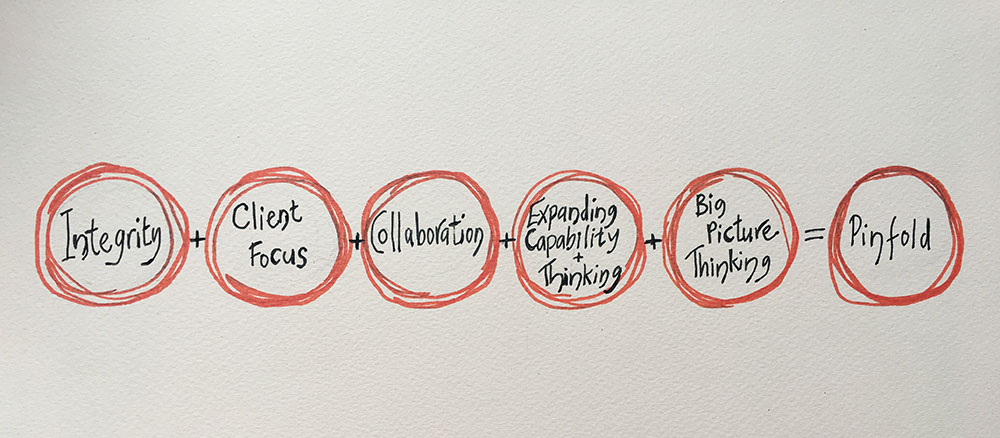 Integrity
+
Client
Focus
+
Collaboration
+
Expanding
Capability
+
Thinking
+
Big
Picture
Thinking
=
Pinfold